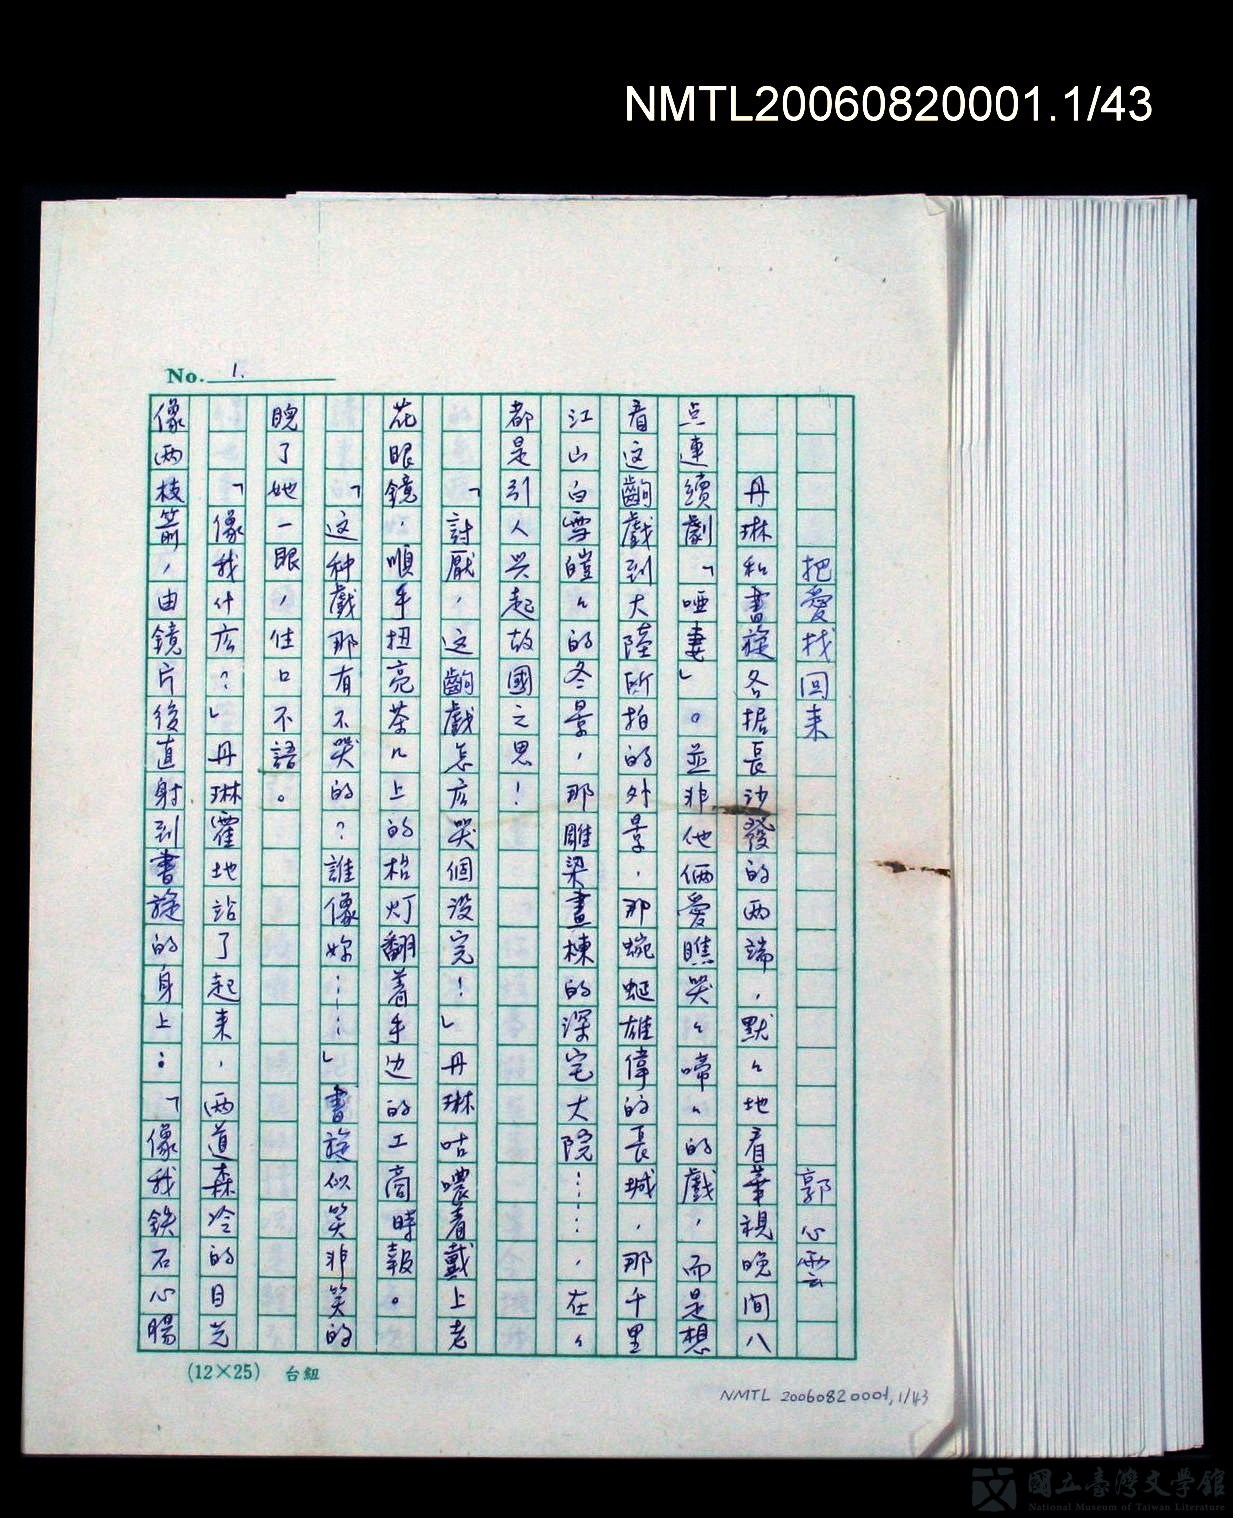 NMTL20060820001.1/43
No. 1.
把愛找回来 郭心雲
丹琳和書旋各据長沙發的两端，默々地看華視晚间八
点連續劇「啞妻」。並非他倆愛瞧哭々啼々的戲，而是想
看这齣戲到大陸所拍的外景，那蜿蜒雄偉的長城，那千里
江山白雪皚々的冬景，那雕梁畫棟的深宅大院……，在々
都是引人兴起故國之思！
「討厭，这齣戲怎広哭個没完！」丹琳咕噥着戴上老
花眼鏡，順手扭亮茶几上的枱灯翻着手边的工商時報。
「这种戲那有不哭的？誰像妳……」書旋似笑非笑的
睨了她一眼，住口不語。
「像我什広？」丹琳霍地站了起来，两道森冷的目光
像两枝箭，由鏡片後直射到書旋的身上：「像我鉄石心腸
(12×25) 台紐
NMTL 20060820001.1/43
國立臺灣文學館
National Museum of Taiwan Literature